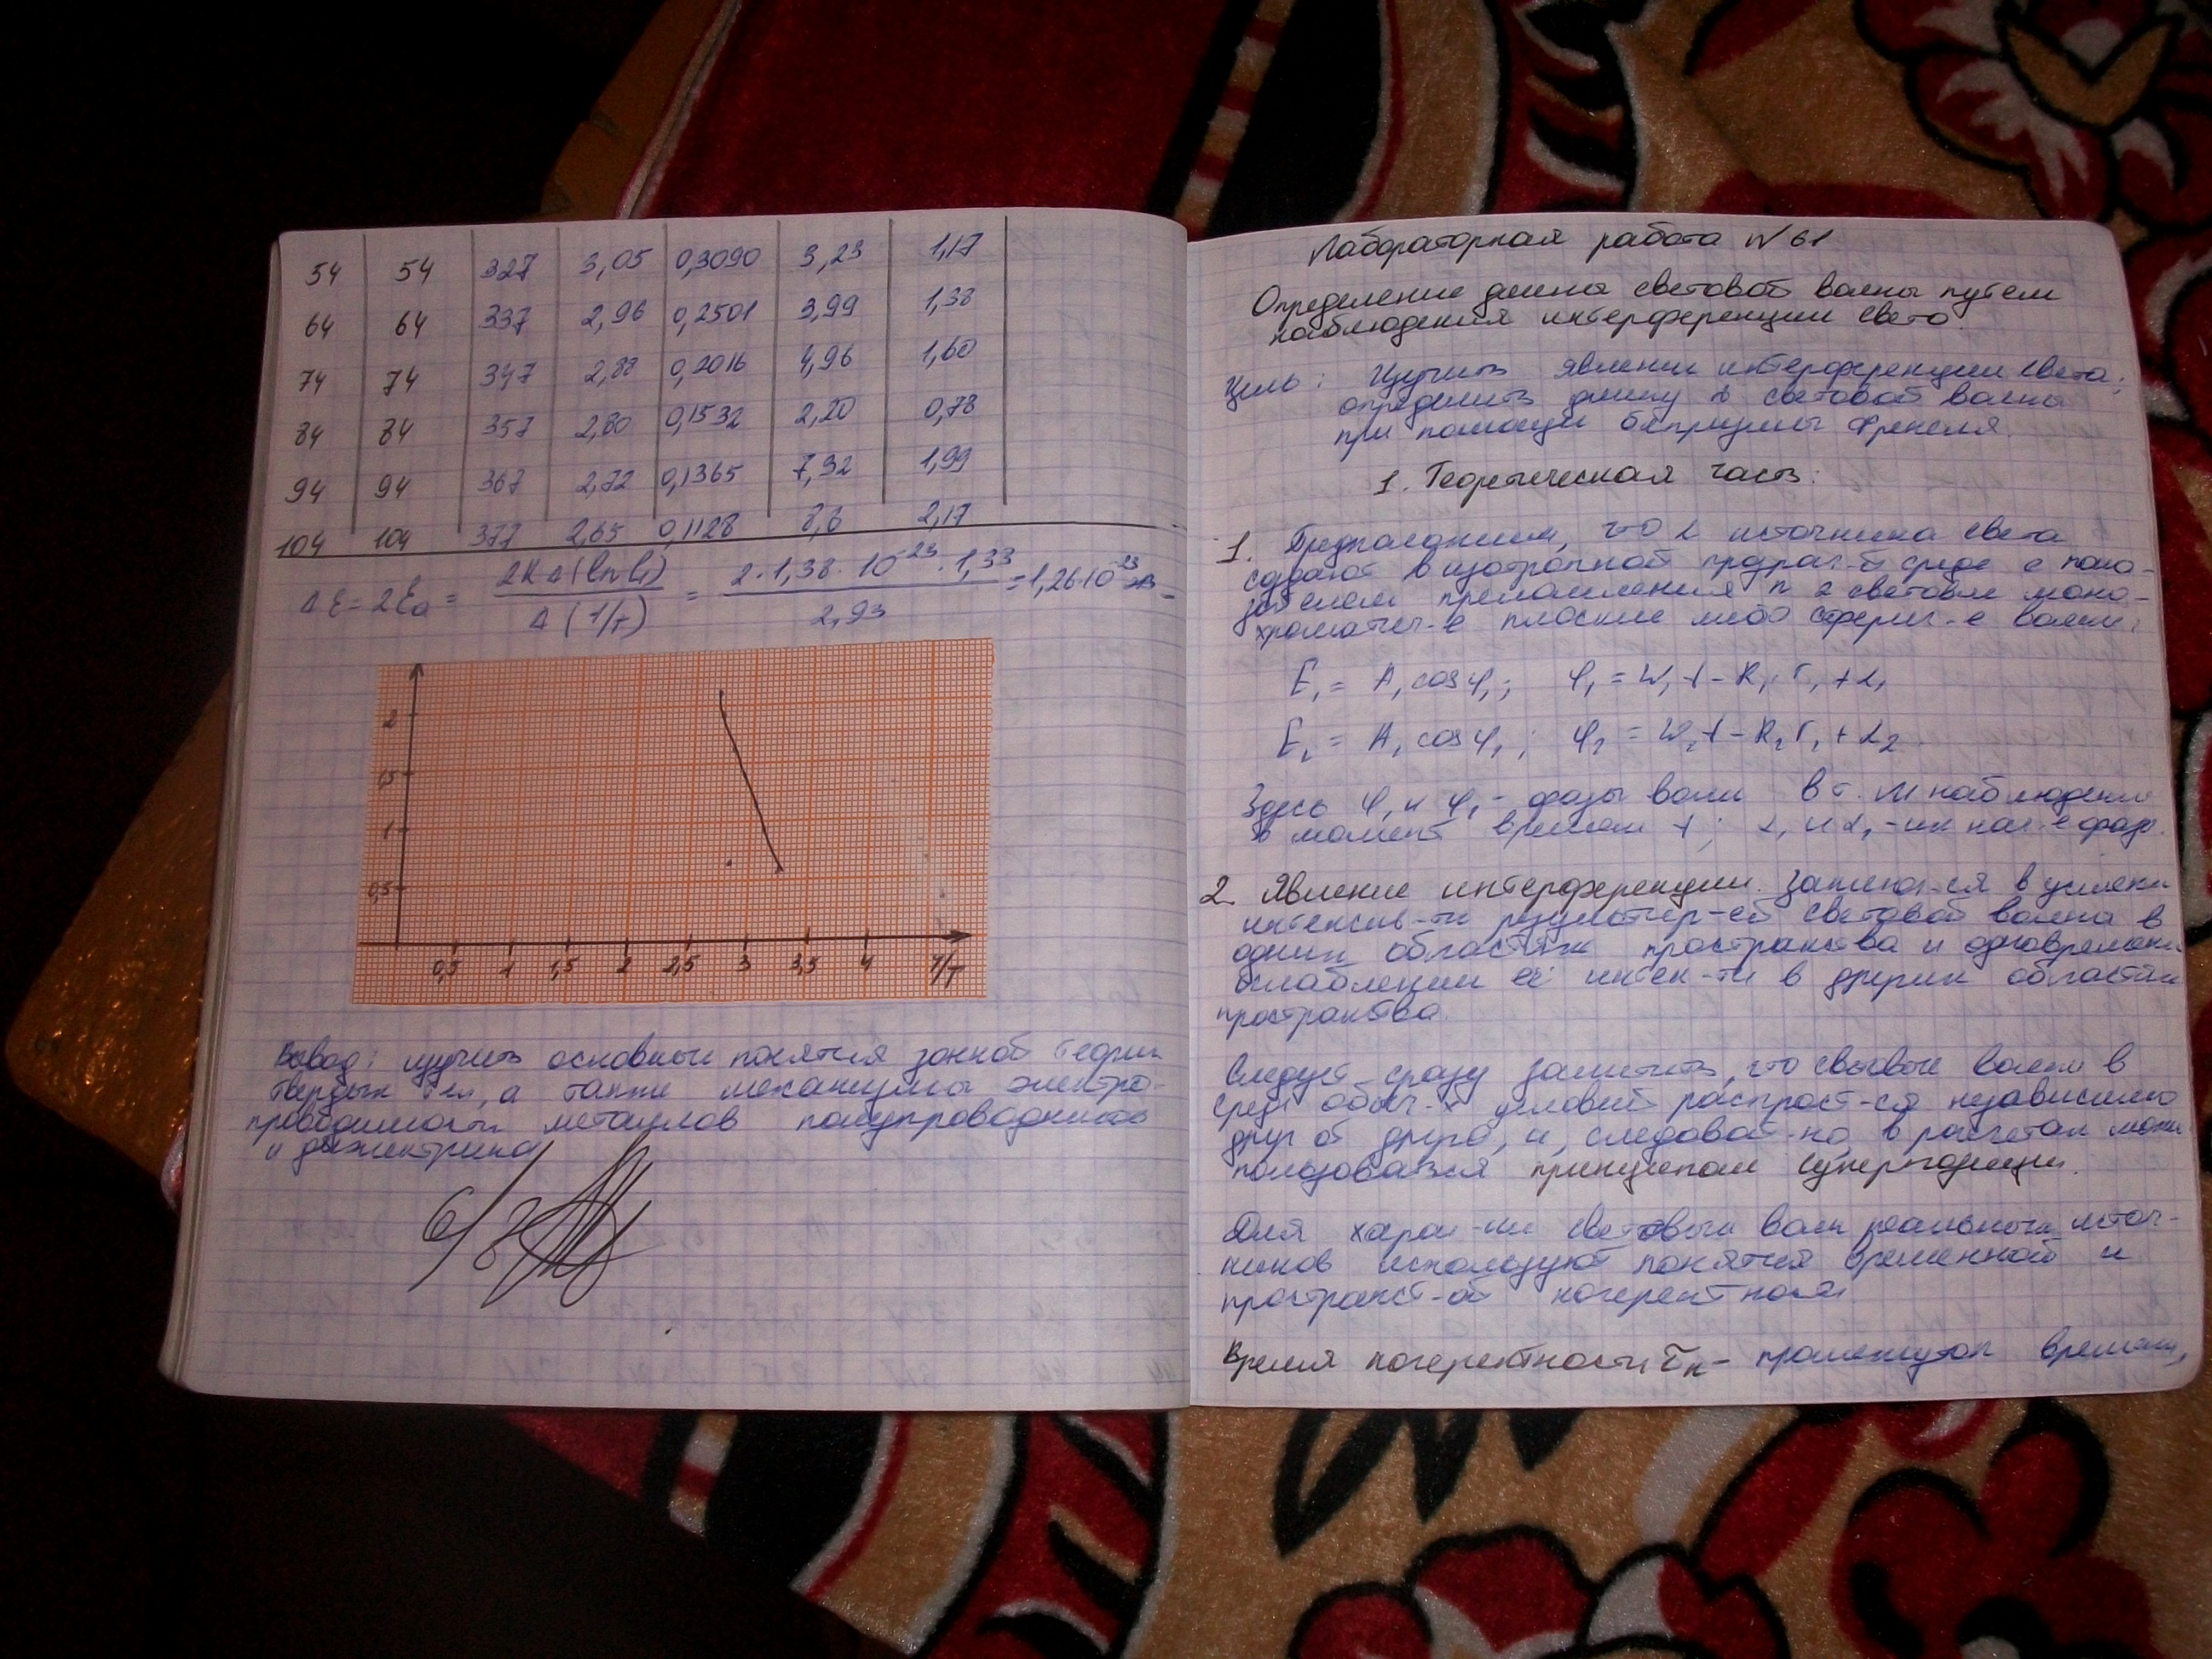 54 54 327 3,05 0,3090 3,23 1,17
64 64 337 2,96 0,2501 3,99 1,38
74 74 347 2,88 0,2016 4,96 1,60
84 84 357 2,80 0,1532 2,20 0,78
94 94 367 2,72 0,1365 7,32 1,99
104 104 377 2,65 0,1128 8,8 2,17
ΔE = 2E₀ = 2kΔ(ln G) / Δ(1/T) = 2·1,38·10⁻²³·1,33 / 2,93 = 1,26·10⁻²³
2
1,5
1
0,5
0,5 1 1,5 2 2,5 3 3,5 4 1/T
Вывод: изучить основные понятия зонной теории
твердых тел, а также механизмы электро-
проводимости металлов полупроводников
и диэлектрика
Лабораторная работа N 61
Определение длины световой волны путем
наблюдения интерференции света.
Цель: Изучить явление интерференции света;
определить длину световой волны
при помощи бипризмы Френеля.
1. Теоретическая часть:
1. Предположим, что 2 источника света
создают в изотропной прозрач-й среде с пока-
зателем преломления n 2 световые моно-
хроматич-е плоские либо сферич-е волны:
E₁ = A₁ cos φ₁; φ₁ = W₁t - K₁r₁ + α₁
E₂ = A₁ cos φ₁; φ₂ = W₂t - K₂r₁ + α₂
Здесь φ₁ и φ₁ - фазы волн в т. М наблюдения
в момент времени t; α₁ и α₁ - их нач-е фазы.
2. Явление интерференции. заключ-ся в усилении
интенсив-ти результир-ей световой волны в
одних областях пространства и одновременно
ослаблении её интен-ти в других областях
пространства.
Следует сразу заметить, что световые волны в
среде обыч-х условий распрост-ся независимо
друг от друга, и, следоват-но, в расчетах можно
пользоваться принципом суперпозиции.
Для харак-ки световых волн реальных источ-
ников используют понятия временной и
пространст-ой когерентности
Время когерентности τₖ - промежуток времени,